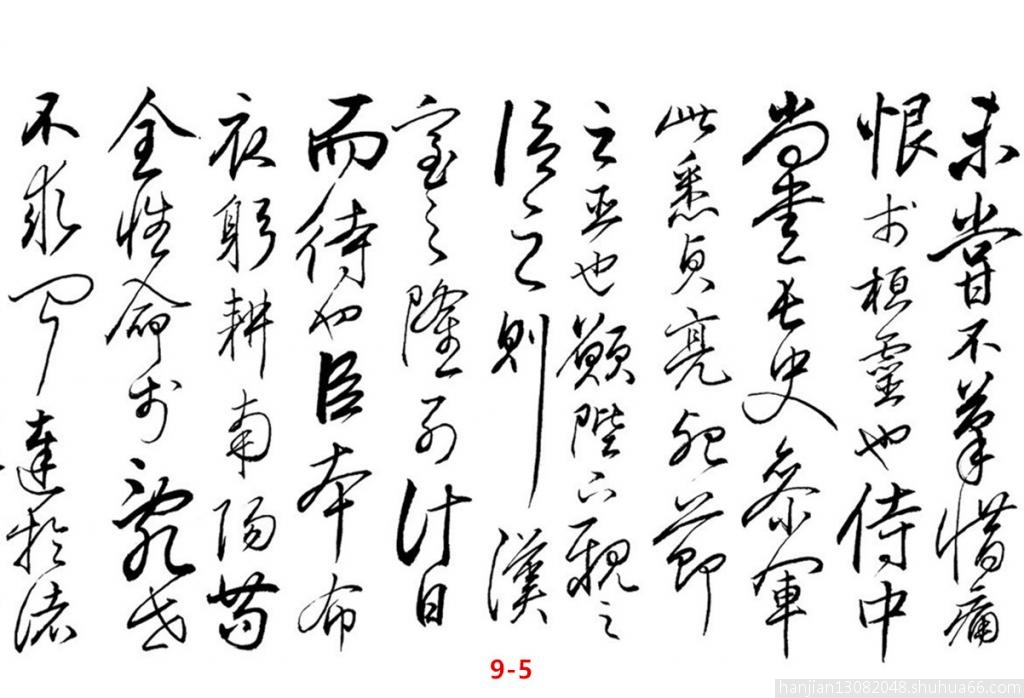 未嘗不惜痛
恨於桓靈也侍中
尚書長史參軍
此悉貞亮死節
之臣也願陛下親之
信之則漢
室之隆可計日
而待也臣本布
衣躬耕南陽苟
全性命於亂世
不求聞達於諸
9-5
hanjian13082048.shuhua66.com